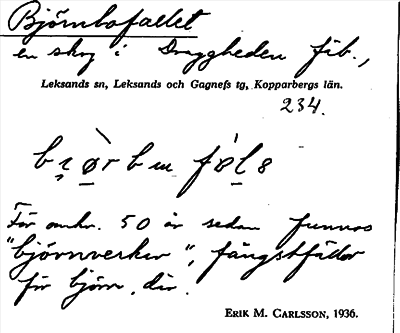 Björnbofallet
en skog i Draggheden fäb.,
Leksands sn, Leksands och Gagnefs tg, Kopparbergs län.
234.
För omkr. 50 år sedan funnos
"björnverker", fångstfällor
för björn, där.
ERIK M. CARLSSON, 1936.